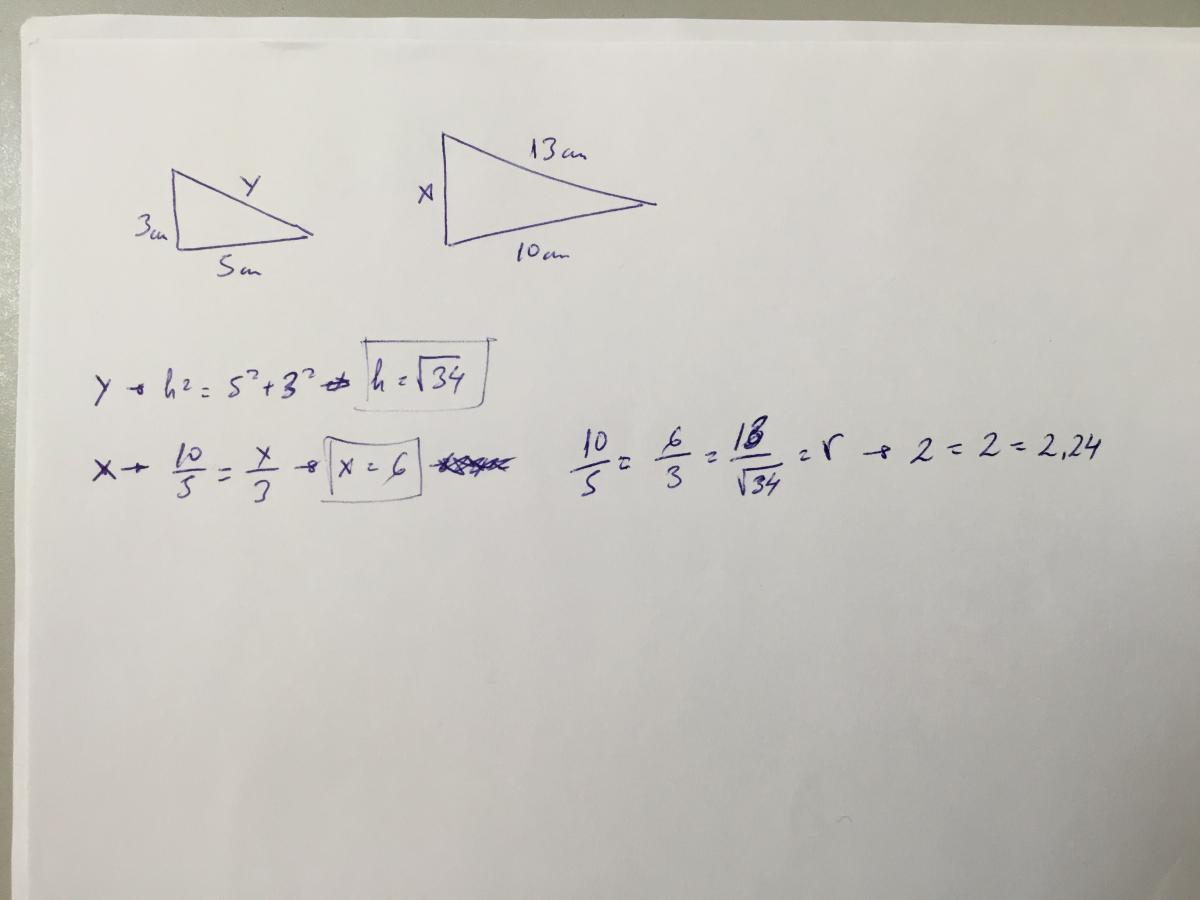 13cm
Y
X
3cm
5cm
10cm
Y → h² = 5² + 3² → h = √34
X → 10/5 = x/3 → x = 6
10/5 = 6/3 = 13/√34 = r → 2 = 2 = 2,24